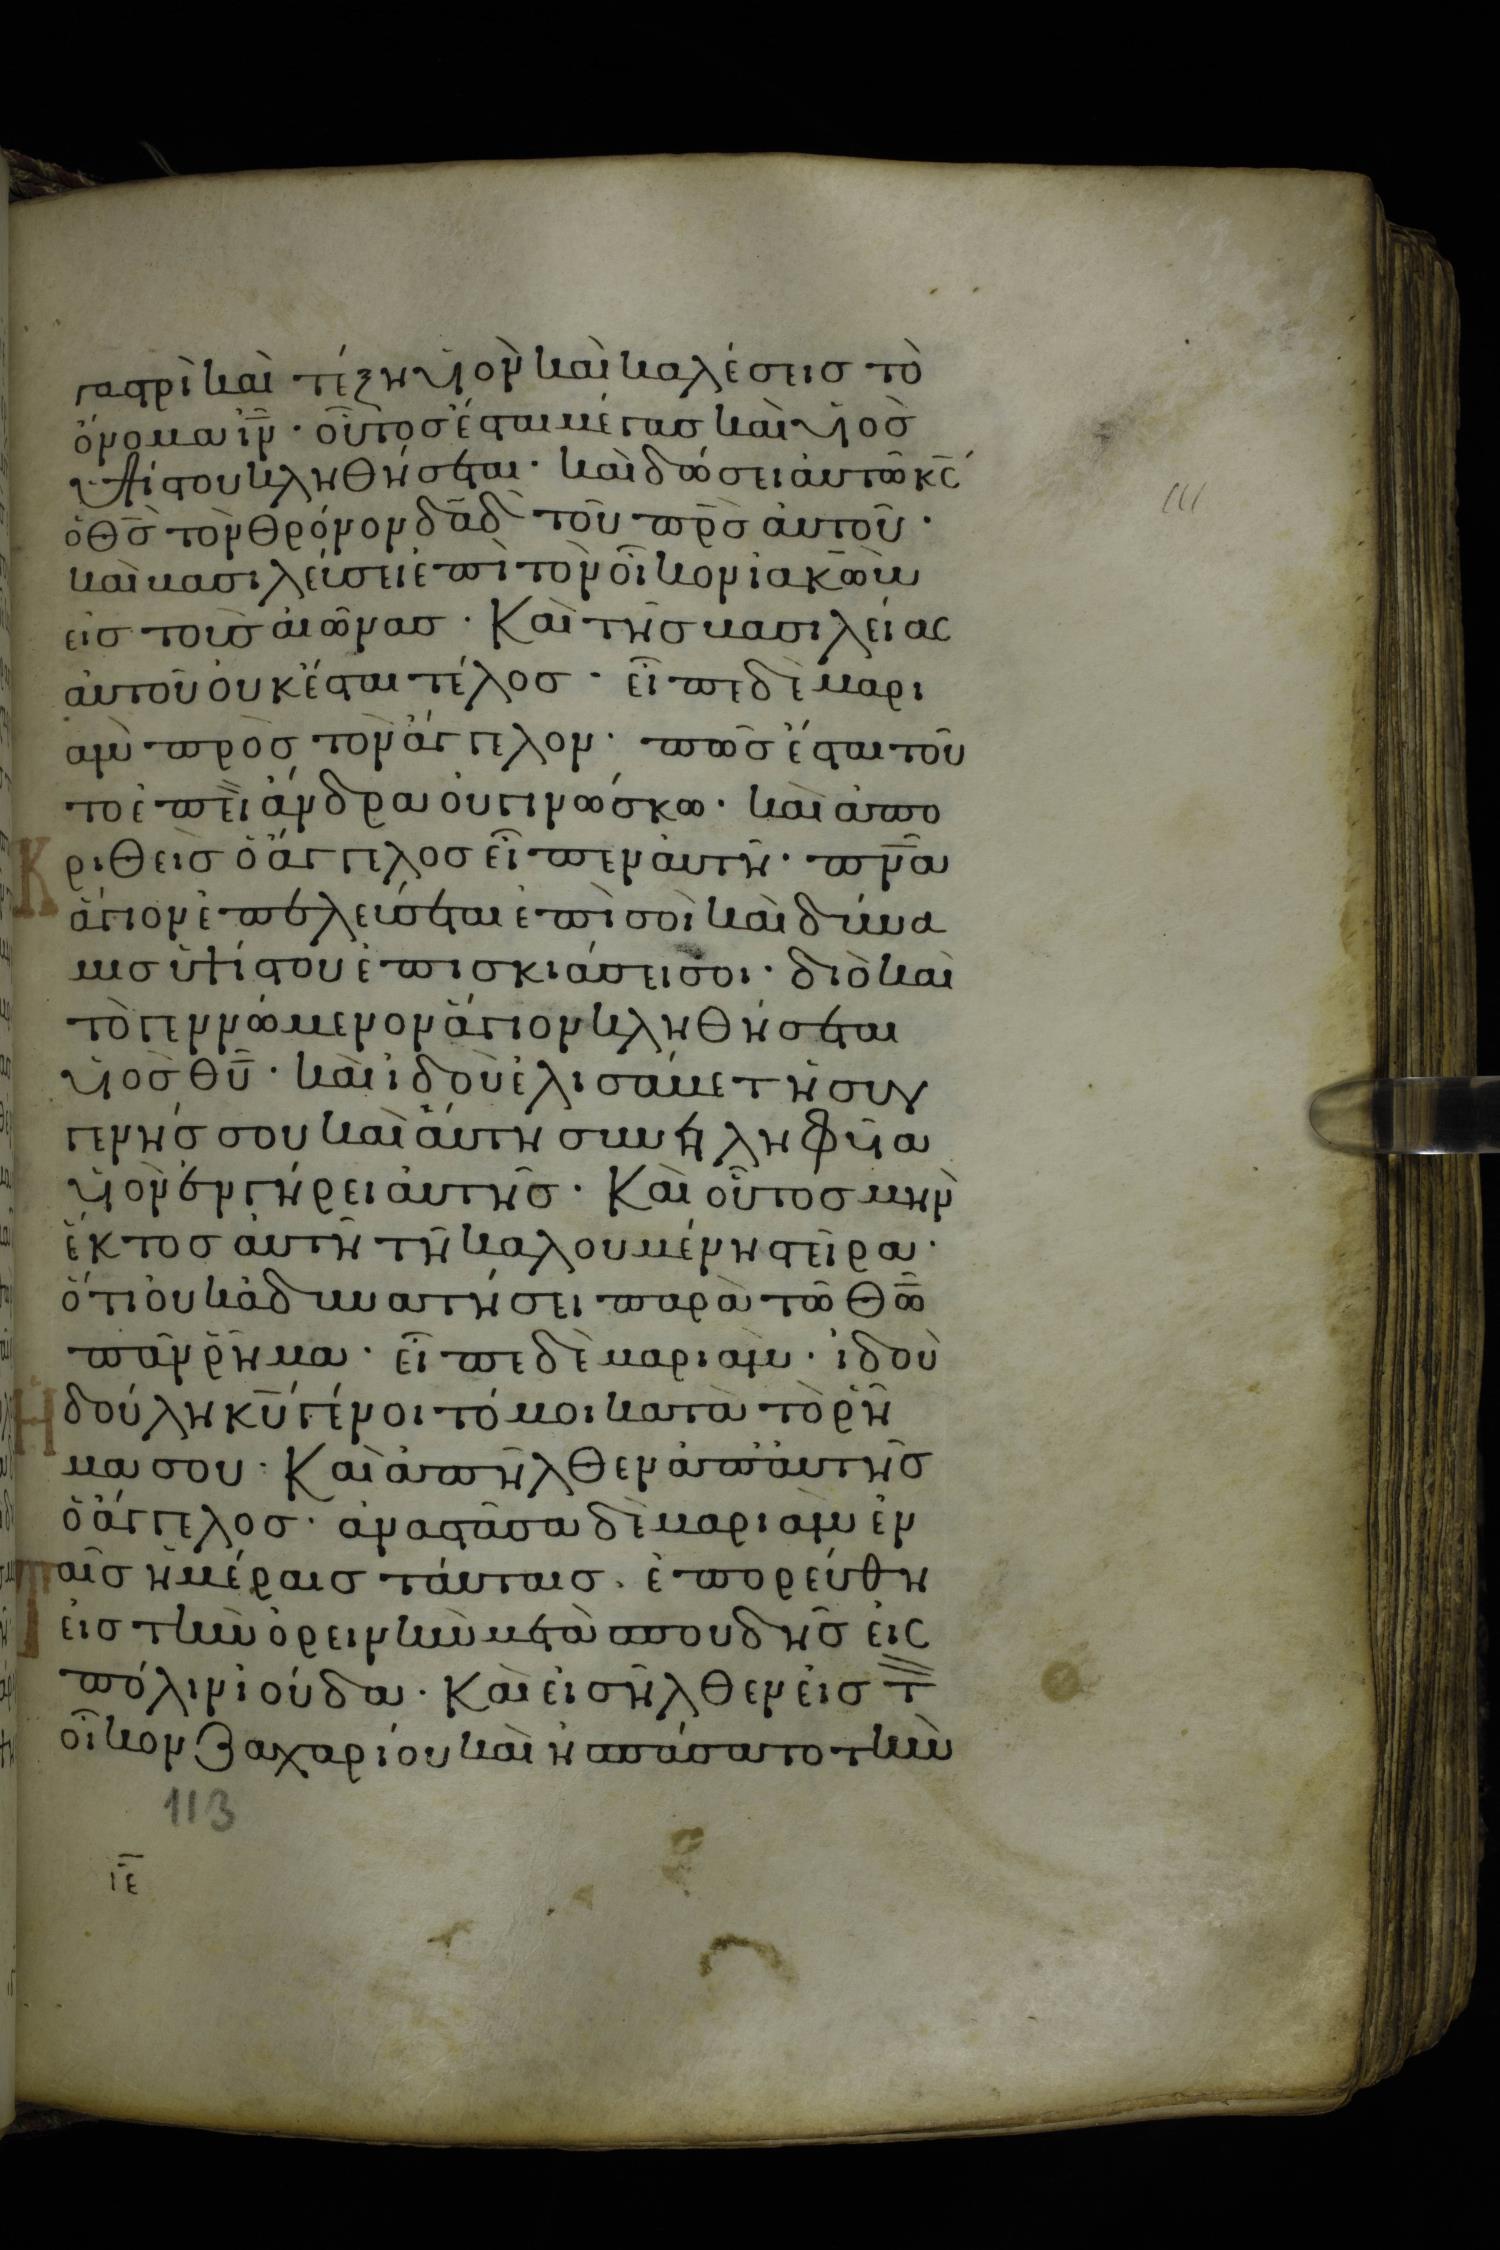 γαστρὶ καὶ τέξη υἱὸν καὶ καλέσεις τὸ
ὄνομα ἰν̅· οὗτος ἔσται μέγας καὶ υἱὸς
ὑψίστου κληθήσεται· καὶ δώσει αὐτῶ κ̅ς
ὁ θ̅ς τὸν θρόνον δα̅δ τοῦ π̅ρς αὐτοῦ·
καὶ βασιλεύσει ἐπὶ τὸν οἶκον ἰακὼβ
εἰς τοὺς αἰῶνας· Καὶ τῆς βασιλείας
αὐτοῦ οὐκ έσται τέλος· εἶπε δὲ μαρι
ὰμ πρὸς τὸν ἄγγελον· πῶς ἔσται τοῦ
το ἐπεὶ ἄνδρα οὐ γινώσκω· καὶ ἀπο
κριθεὶς ὁ ἄγγελος εἶπεν αὐτῆ· π̅να
ἅγιον ἐπελεύσεται ἐπὶ σοὶ καὶ δύνα
μισ ὑψίστου ἐπισκιάσει σοι· διὸ καὶ
τὸ γεννώμενον ἅγιον κληθήσεται
υἱὸς θ̅υ· καὶ ἰδοὺ ἐλισάβετ ἡ συγ
γενής σου καὶ αὐτη συνειληφυῖα
υἱὸν ἐν γήρει αὐτῆς· Καὶ οὗτος μὴν
ἕκτος αὐτῆ τῆ καλουμένη στεῖρα·
ὅτι οὐκ ἀδυνατήσει παρὰ τῶ θ̅ω
πᾶν ῥῆμα· εἶπε δὲ μαριὰμ· ἰδοὺ
Ἡ δούλη κ̅υ γένοιτό μοι κατὰ τὸ ῥῆ
μα σου· Καὶ ἀπῆλθεν ἀπ' αὐτῆς
ὁ ἄγγελος· ἀναστᾶσα δὲ μαριὰμ ἐν
Ταῖς ἡμέραις ταύταις· ἐπορεύθη
εἰς τὴν ὀρεινὴν μετὰ σπουδῆς εἰς
πόλιν ἰούδα· Καὶ εἰσῆλθεν εἰς τ
οἶκον Ζαχαρίου καὶ ἠσπάσατο τὴν
113
ι̅ε
111